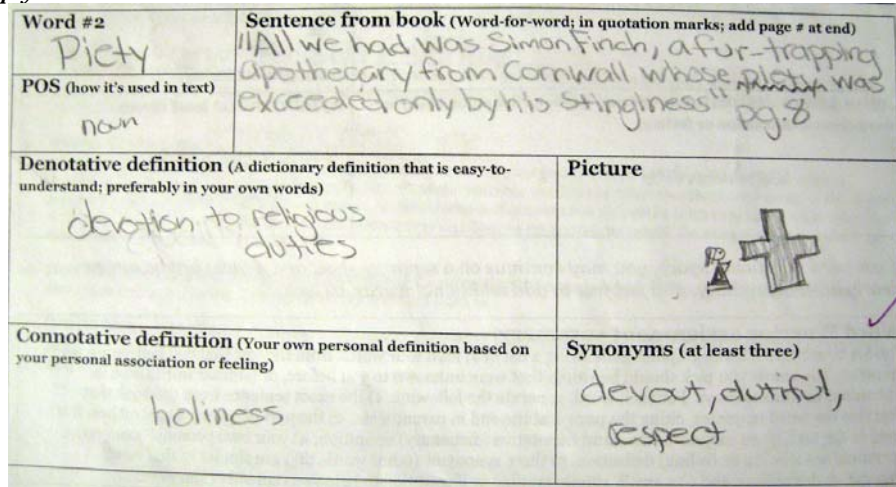 Word #2
Piety
POS (how it's used in text)
noun
Sentence from book (Word-for-word; in quotation marks; add page # at end)
"All we had was Simon Finch, a fur-trapping
apothecary from Cornwall whose piety was
exceeded only by his stinginess"
pg.8
Denotative definition (A dictionary definition that is easy-to-
understand; preferably in your own words)
devotion to religious
duties
Picture
Connotative definition (Your own personal definition based on
your personal association or feeling)
holiness
Synonyms (at least three)
devout, dutiful,
respect